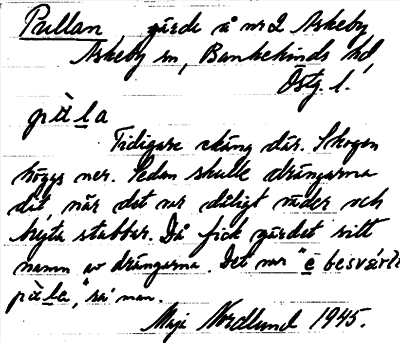 Pullan gärde å nr 2 Askeby,
Askeby sn, Bankekinds hd,
Östg. l.
Tidigare skäng där. Skogen
höggs ner. Sedan skulle drängarna
dit, när det var dåligt väder och
bryta stubbar. Då fick gärdet sitt
namn av drängarna. Det var "e besvärli
sa' man.
Maji Nordlund 1945.